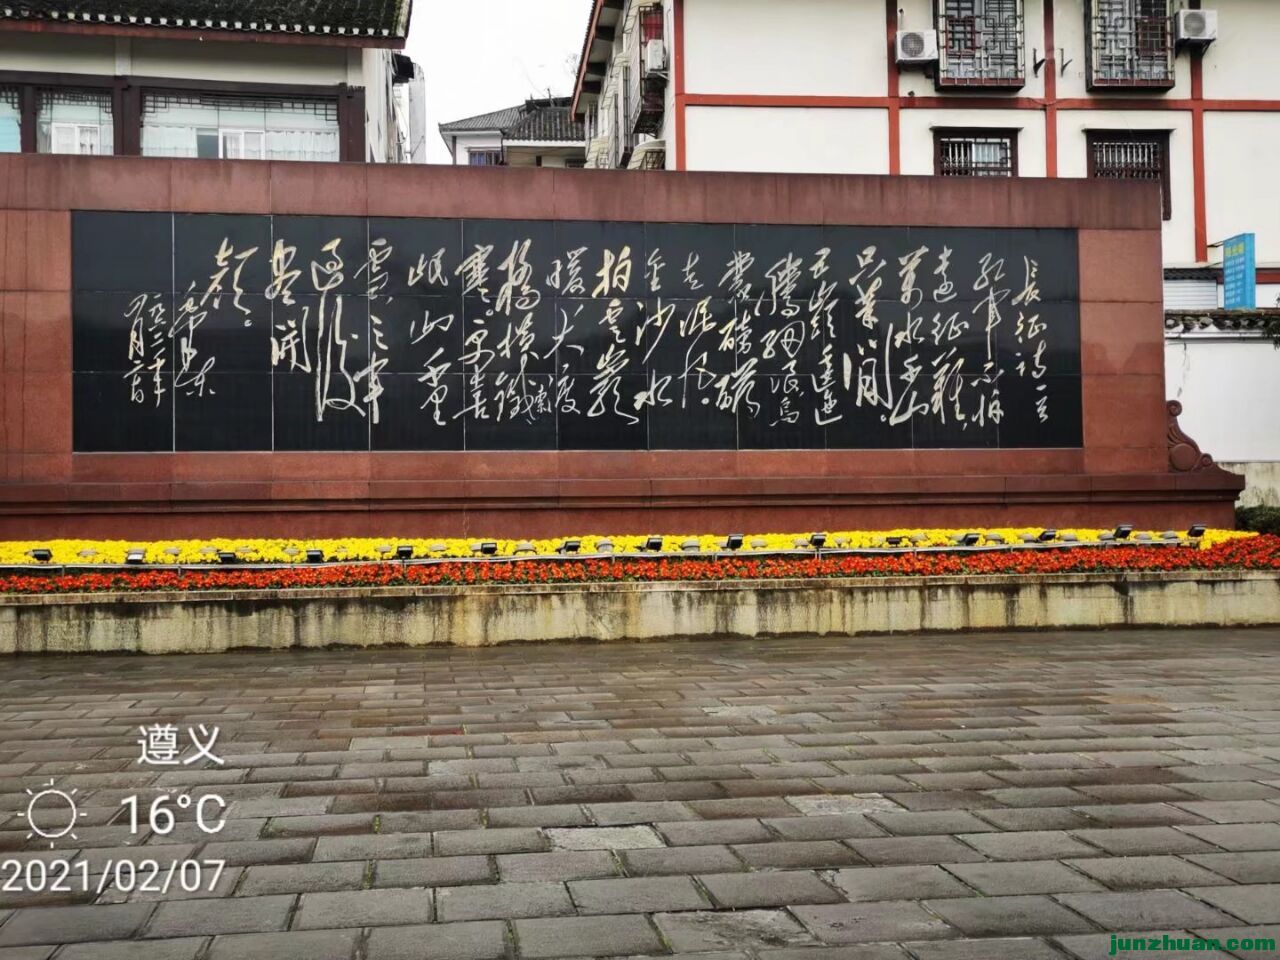 長征詩一首
紅軍不怕
遠征難，
萬水千山
只等閒。
五嶺逶迤
騰細浪，烏
蒙磅礴
走泥丸。
金沙水
拍雲崖
暖，大渡
橋橫鐵索
寒。更喜
岷山千里
雪，三軍
過後
盡開
顏。
毛澤東
遵义
16°C
2021/02/07
junzhuan.com